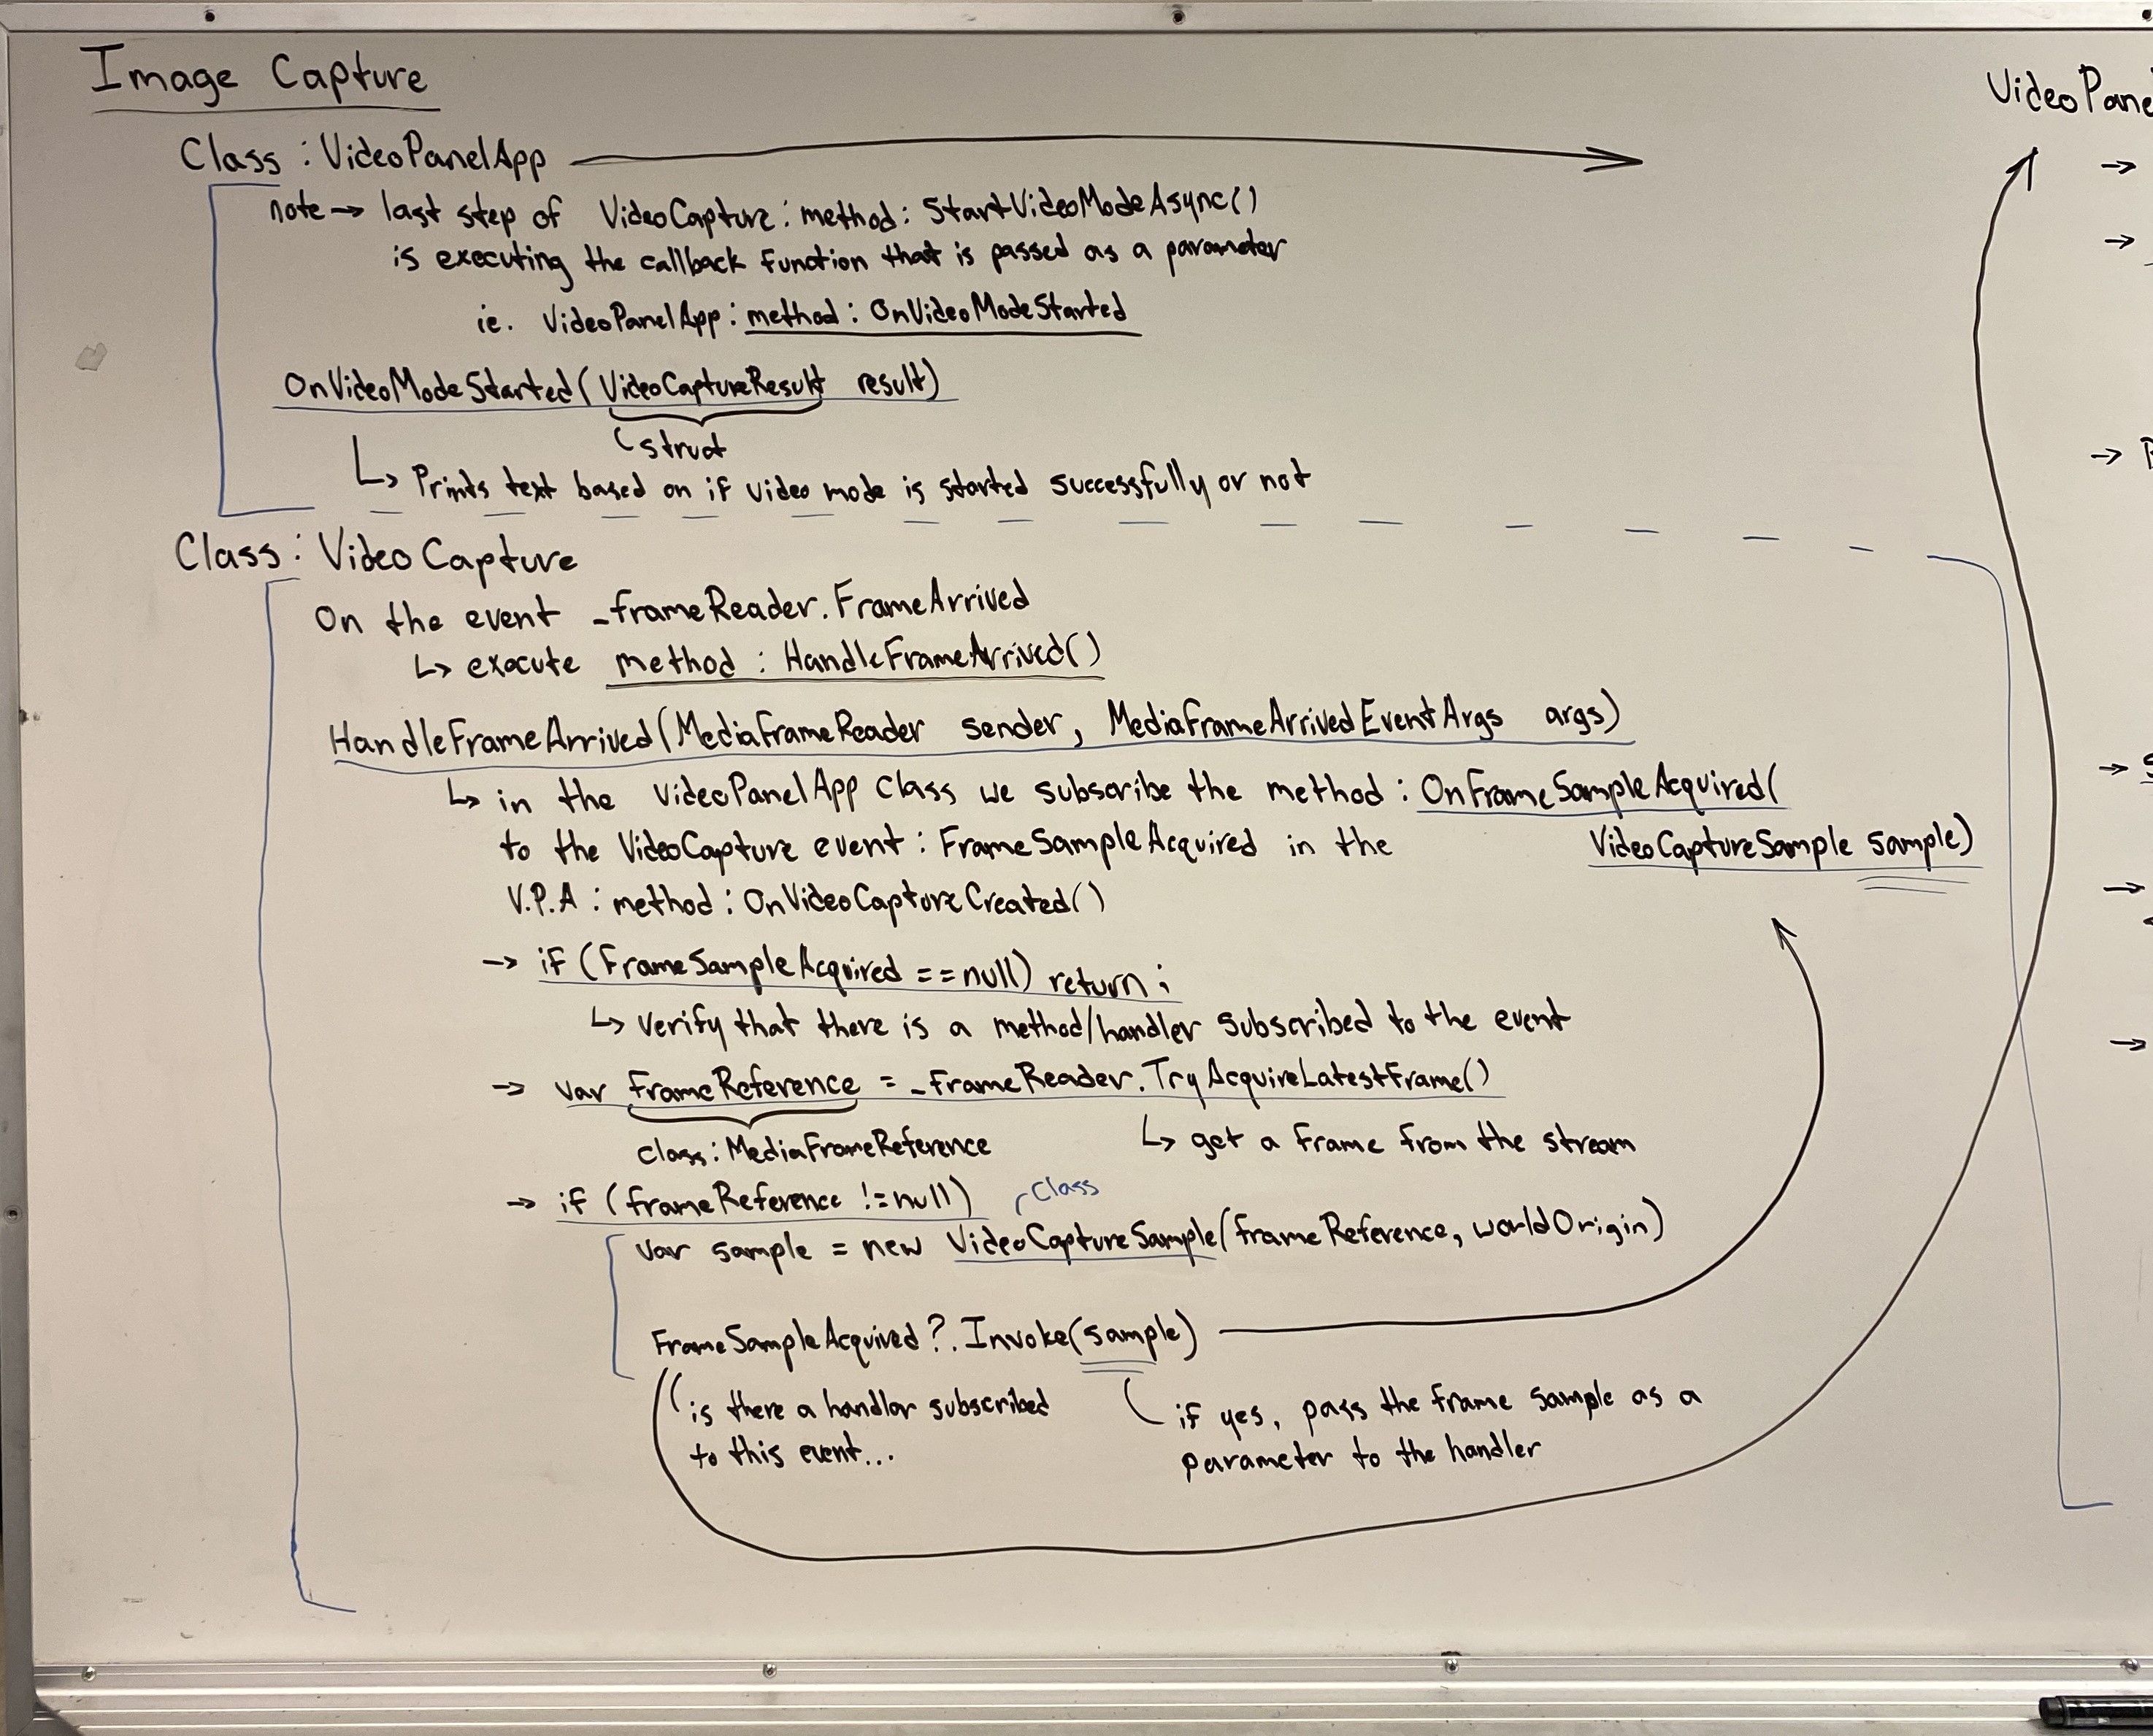 Image Capture
Class : VideoPanelApp
note → last step of VideoCapture : method : StartVideoModeAsync()
is executing the callback function that is passed as a parameter
ie. VideoPanelApp : method : OnVideoModeStarted
OnVideoModeStarted( VideoCaptureResult result)
struct
↳ Prints text based on if video mode is started successfully or not
Class : Video Capture
On the event _frameReader.FrameArrived
↳ execute method : HandleFrameArrived()
HandleFrameArrived(MediaFrameReader sender, MediaFrameArrivedEventArgs args)
↳ in the VideoPanelApp Class we subscribe the method : OnFrameSampleAcquired(
VideoCaptureSample sample)
to the VideoCapture event : FrameSampleAcquired in the
V.P.A : method : OnVideoCaptureCreated()
→ if (FrameSampleAcquired == null) return ;
↳ verify that there is a method/handler subscribed to the event
→ var frameReference = _frameReader.TryAcquireLatestFrame()
class : MediaFrameReference
↳ get a frame from the stream
→ if (frameReference != null)
Class
var sample = new VideoCaptureSample(frameReference, worldOrigin)
FrameSampleAcquired?.Invoke(sample)
is there a handler subscribed
to this event...
if yes, pass the frame sample as a
parameter to the handler
VideoPane
→
→
→
→
→
→